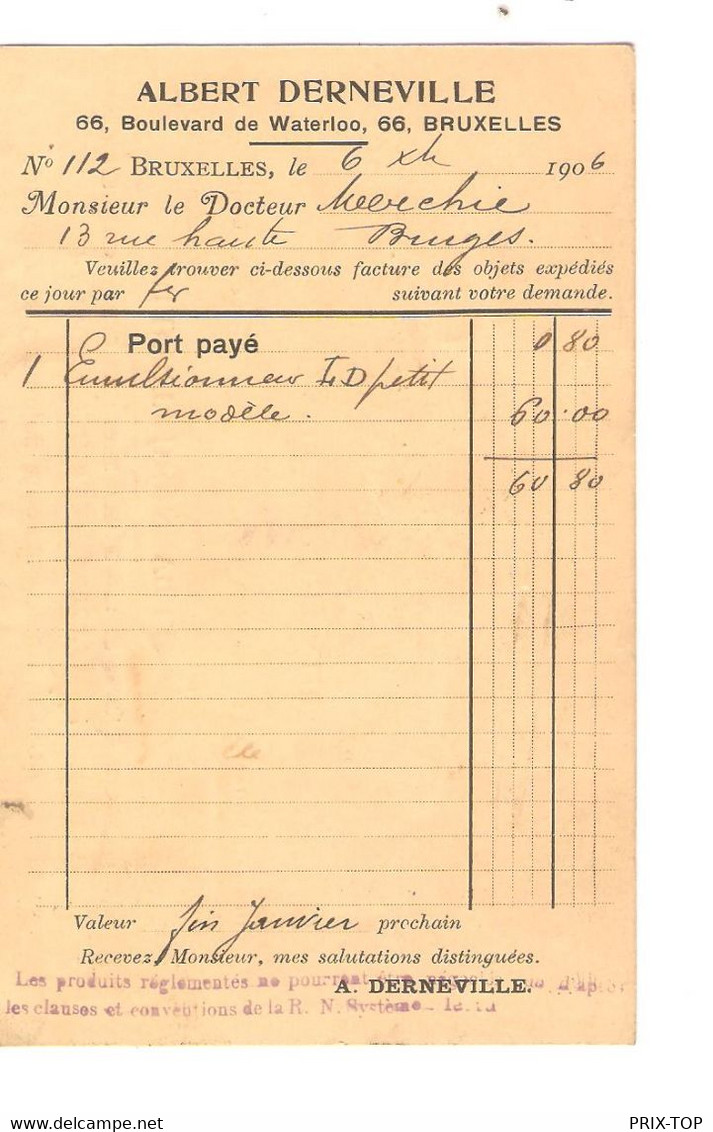 ALBERT DERNEVILLE
66, Boulevard de Waterloo, 66, BRUXELLES
No 112 BRUXELLES, le 6 1906
Monsieur le Docteur
13 rue haute Bruges.
Veuillez trouver ci-dessous facture des objets expédiés
ce jour par fer suivant votre demande.
Port payé 0 80
1 Emulsionneur petit
modèle. 60.00
60 80
Valeur fin Janvier prochain
Recevez, Monsieur, mes salutations distinguées.
A. DERNEVILLE.
Les produits réglementés ne pourront être
les clauses et conventions de la R. N. Système
delcampe.net PRIX-TOP